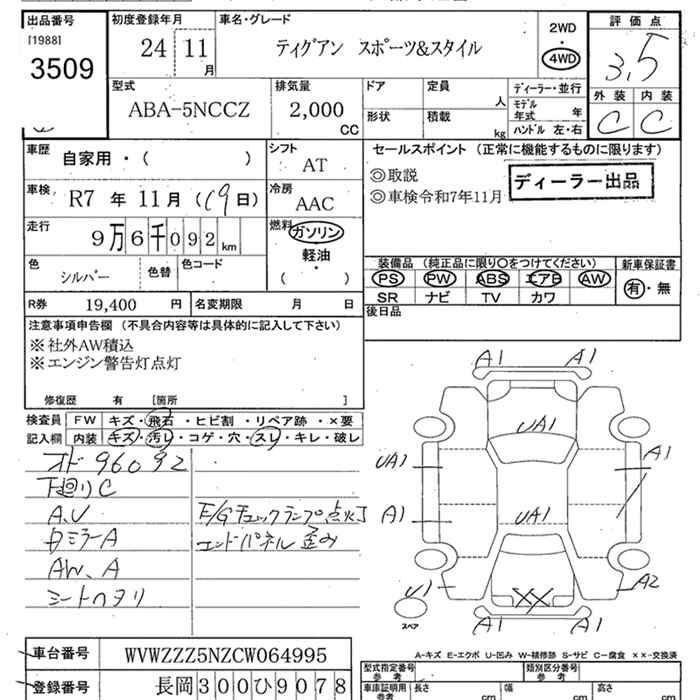 出品番号 初度登録年月 車名・グレード 2WD 評価点
[1988] 3509 24 11月 ティグアン スポーツ&スタイル ・ 4WD 3,5
型式 排気量 ドア 定員 人 ディーラー・並行 外装 内装
ABA-5NCCZ 2,000 CC 形状 積載 kg モデル年式 年 C C
ハンドル 左・右
車歴 自家用・( ) シフト AT セールスポイント (正常に機能するものに限ります)
◎取説
◎車検令和7年11月 ディーラー出品
車検 R7 年 11月 (19日) 冷房 AAC
走行 9万6千092km 燃料 ガソリン
軽油・
( )
色 シルバー 色替 色コード
装備品 (純正品に限り○をつけてください) 新車保証書
PS PW ABS エアB AW 有・無
SR ナビ TV カワ
R券 19,400 円 名変期限 月 日 後日品
注意事項申告欄 (不具合内容等は具体的に記入して下さい)
※社外AW積込
※エンジン警告灯点灯
修復歴 有 [箇所 ]
検査員 FW キズ・飛石・ヒビ割・リペア跡・×要
記入欄 内装 キズ・汚レ・コゲ・穴・スレ・キレ・破レ
オド 96092
下廻りC
A、U E/Gチェックランプ点灯
ミラーA エンドパネル歪み
AW、A
シートヘタリ
A1 A1
UA1
UA1 A1
A1 UA1
U1 A2
XX
A1 A1
スペア
A-キズ E-エクボ U-凹み W-補修跡 S-サビ C-腐食 ××-交換済
車台番号 WVWZZZ5NZCW064995
登録番号 長岡300ひ9078
型式指定番号 参考 類別区分番号 参考
車庫証明用 参考 長さ cm 幅 cm 高さ cm